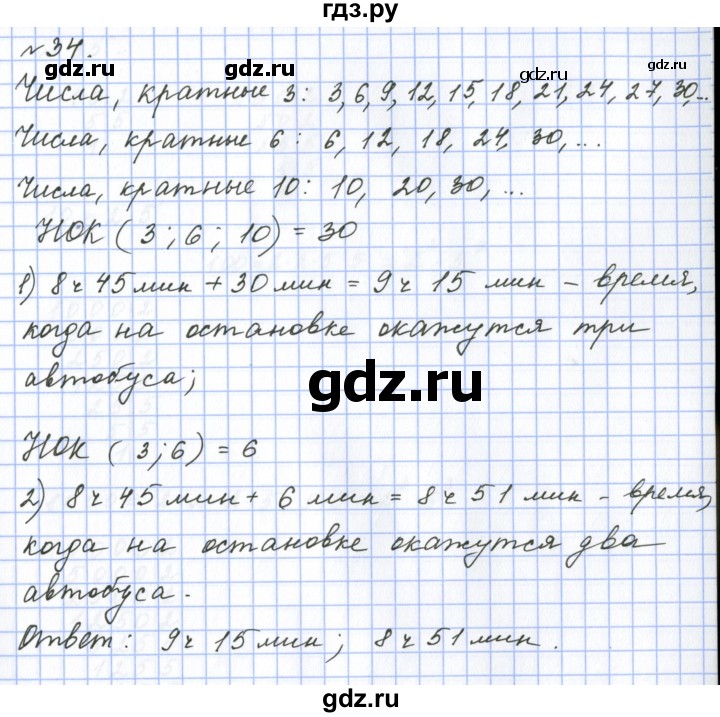 гдз.ру
№34.
gdz.ru gdz.ru
Числа, кратные 3: 3, 6, 9, 12, 15, 18, 21, 24, 27, 30,...
Числа, кратные 6: 6, 12, 18, 24, 30, ...
Числа, кратные 10: 10, 20, 30, ...
НОК (3; 6; 10) = 30
1) 8 ч 45 мин + 30 мин = 9 ч 15 мин - время,
когда на остановке окажутся три
автобуса;
gdz.ru
НОК (3; 6) = 6
2) 8 ч 45 мин + 6 мин = 8 ч 51 мин - время,
когда на остановке окажутся два
автобуса.
gdz.ru gdz.ru
Ответ: 9 ч 15 мин; 8 ч 51 мин.
gdz.ru